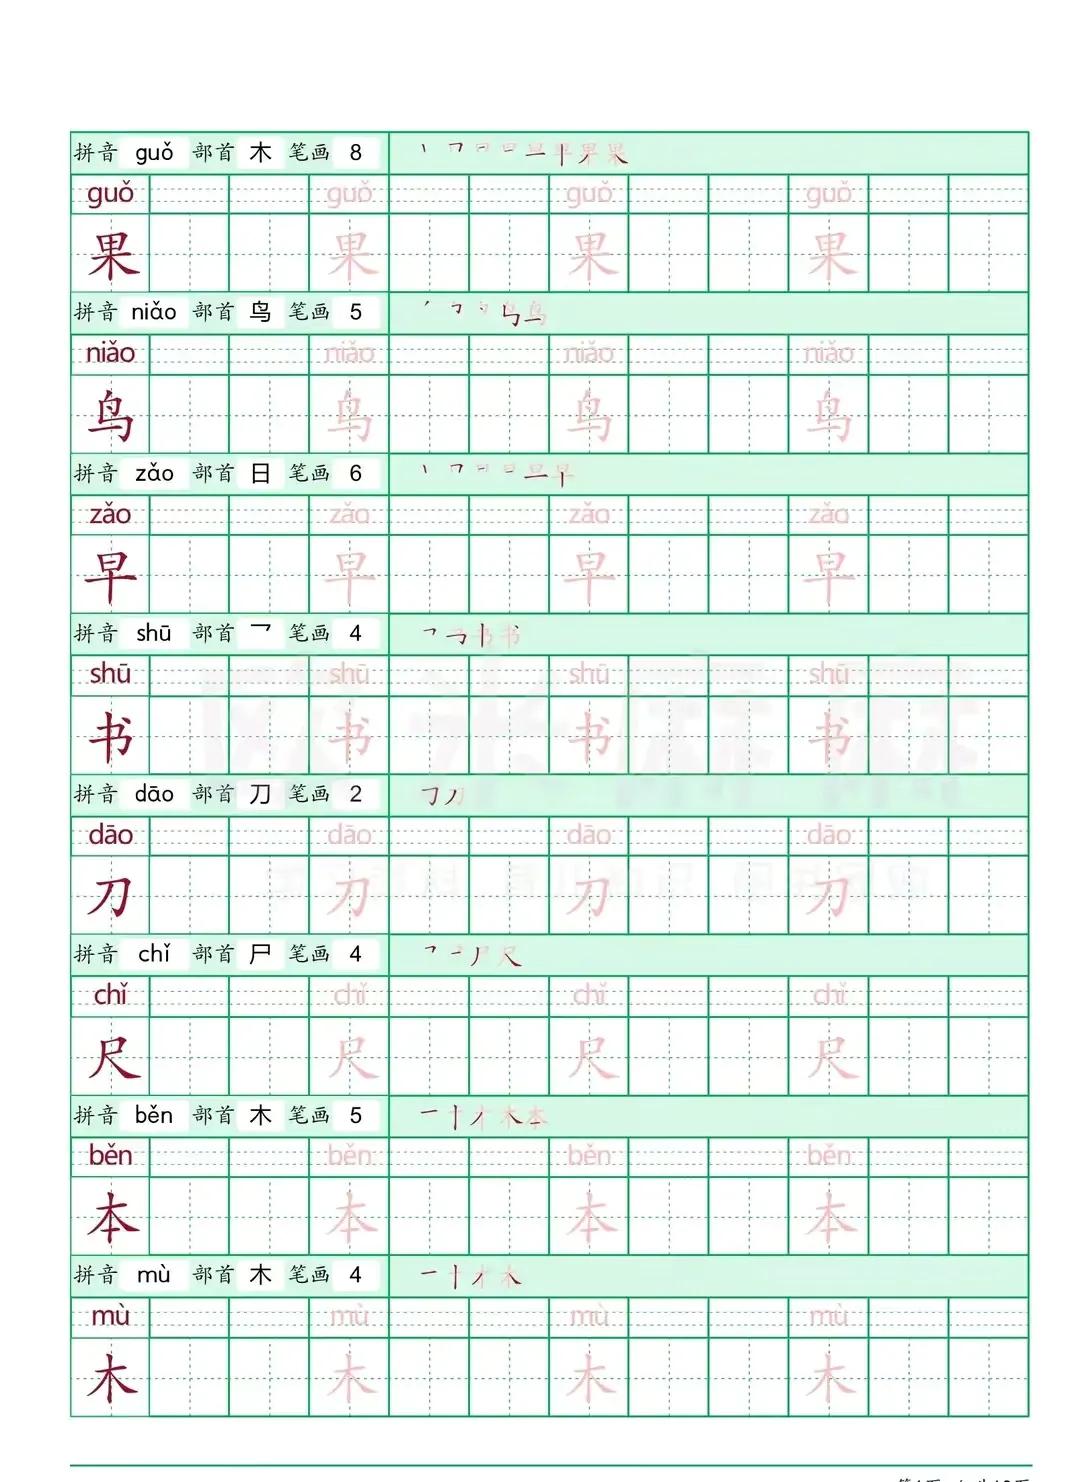 拼音 guǒ 部首 木 笔画 8
guǒ guǒ guǒ guǒ
果 果 果 果
拼音 niǎo 部首 鸟 笔画 5
niǎo niǎo niǎo niǎo
鸟 鸟 鸟 鸟
拼音 zǎo 部首 日 笔画 6
zǎo zǎo zǎo zǎo
早 早 早 早
拼音 shū 部首 乛 笔画 4
shū shū shū shū
书 书 书 书
拼音 dāo 部首 刀 笔画 2
dāo dāo dāo dāo
刀 刀 刀 刀
拼音 chǐ 部首 尸 笔画 4
chǐ chǐ chǐ chǐ
尺 尺 尺 尺
拼音 běn 部首 木 笔画 5
běn běn běn běn
本 本 本 本
拼音 mù 部首 木 笔画 4
mù mù mù mù
木 木 木 木